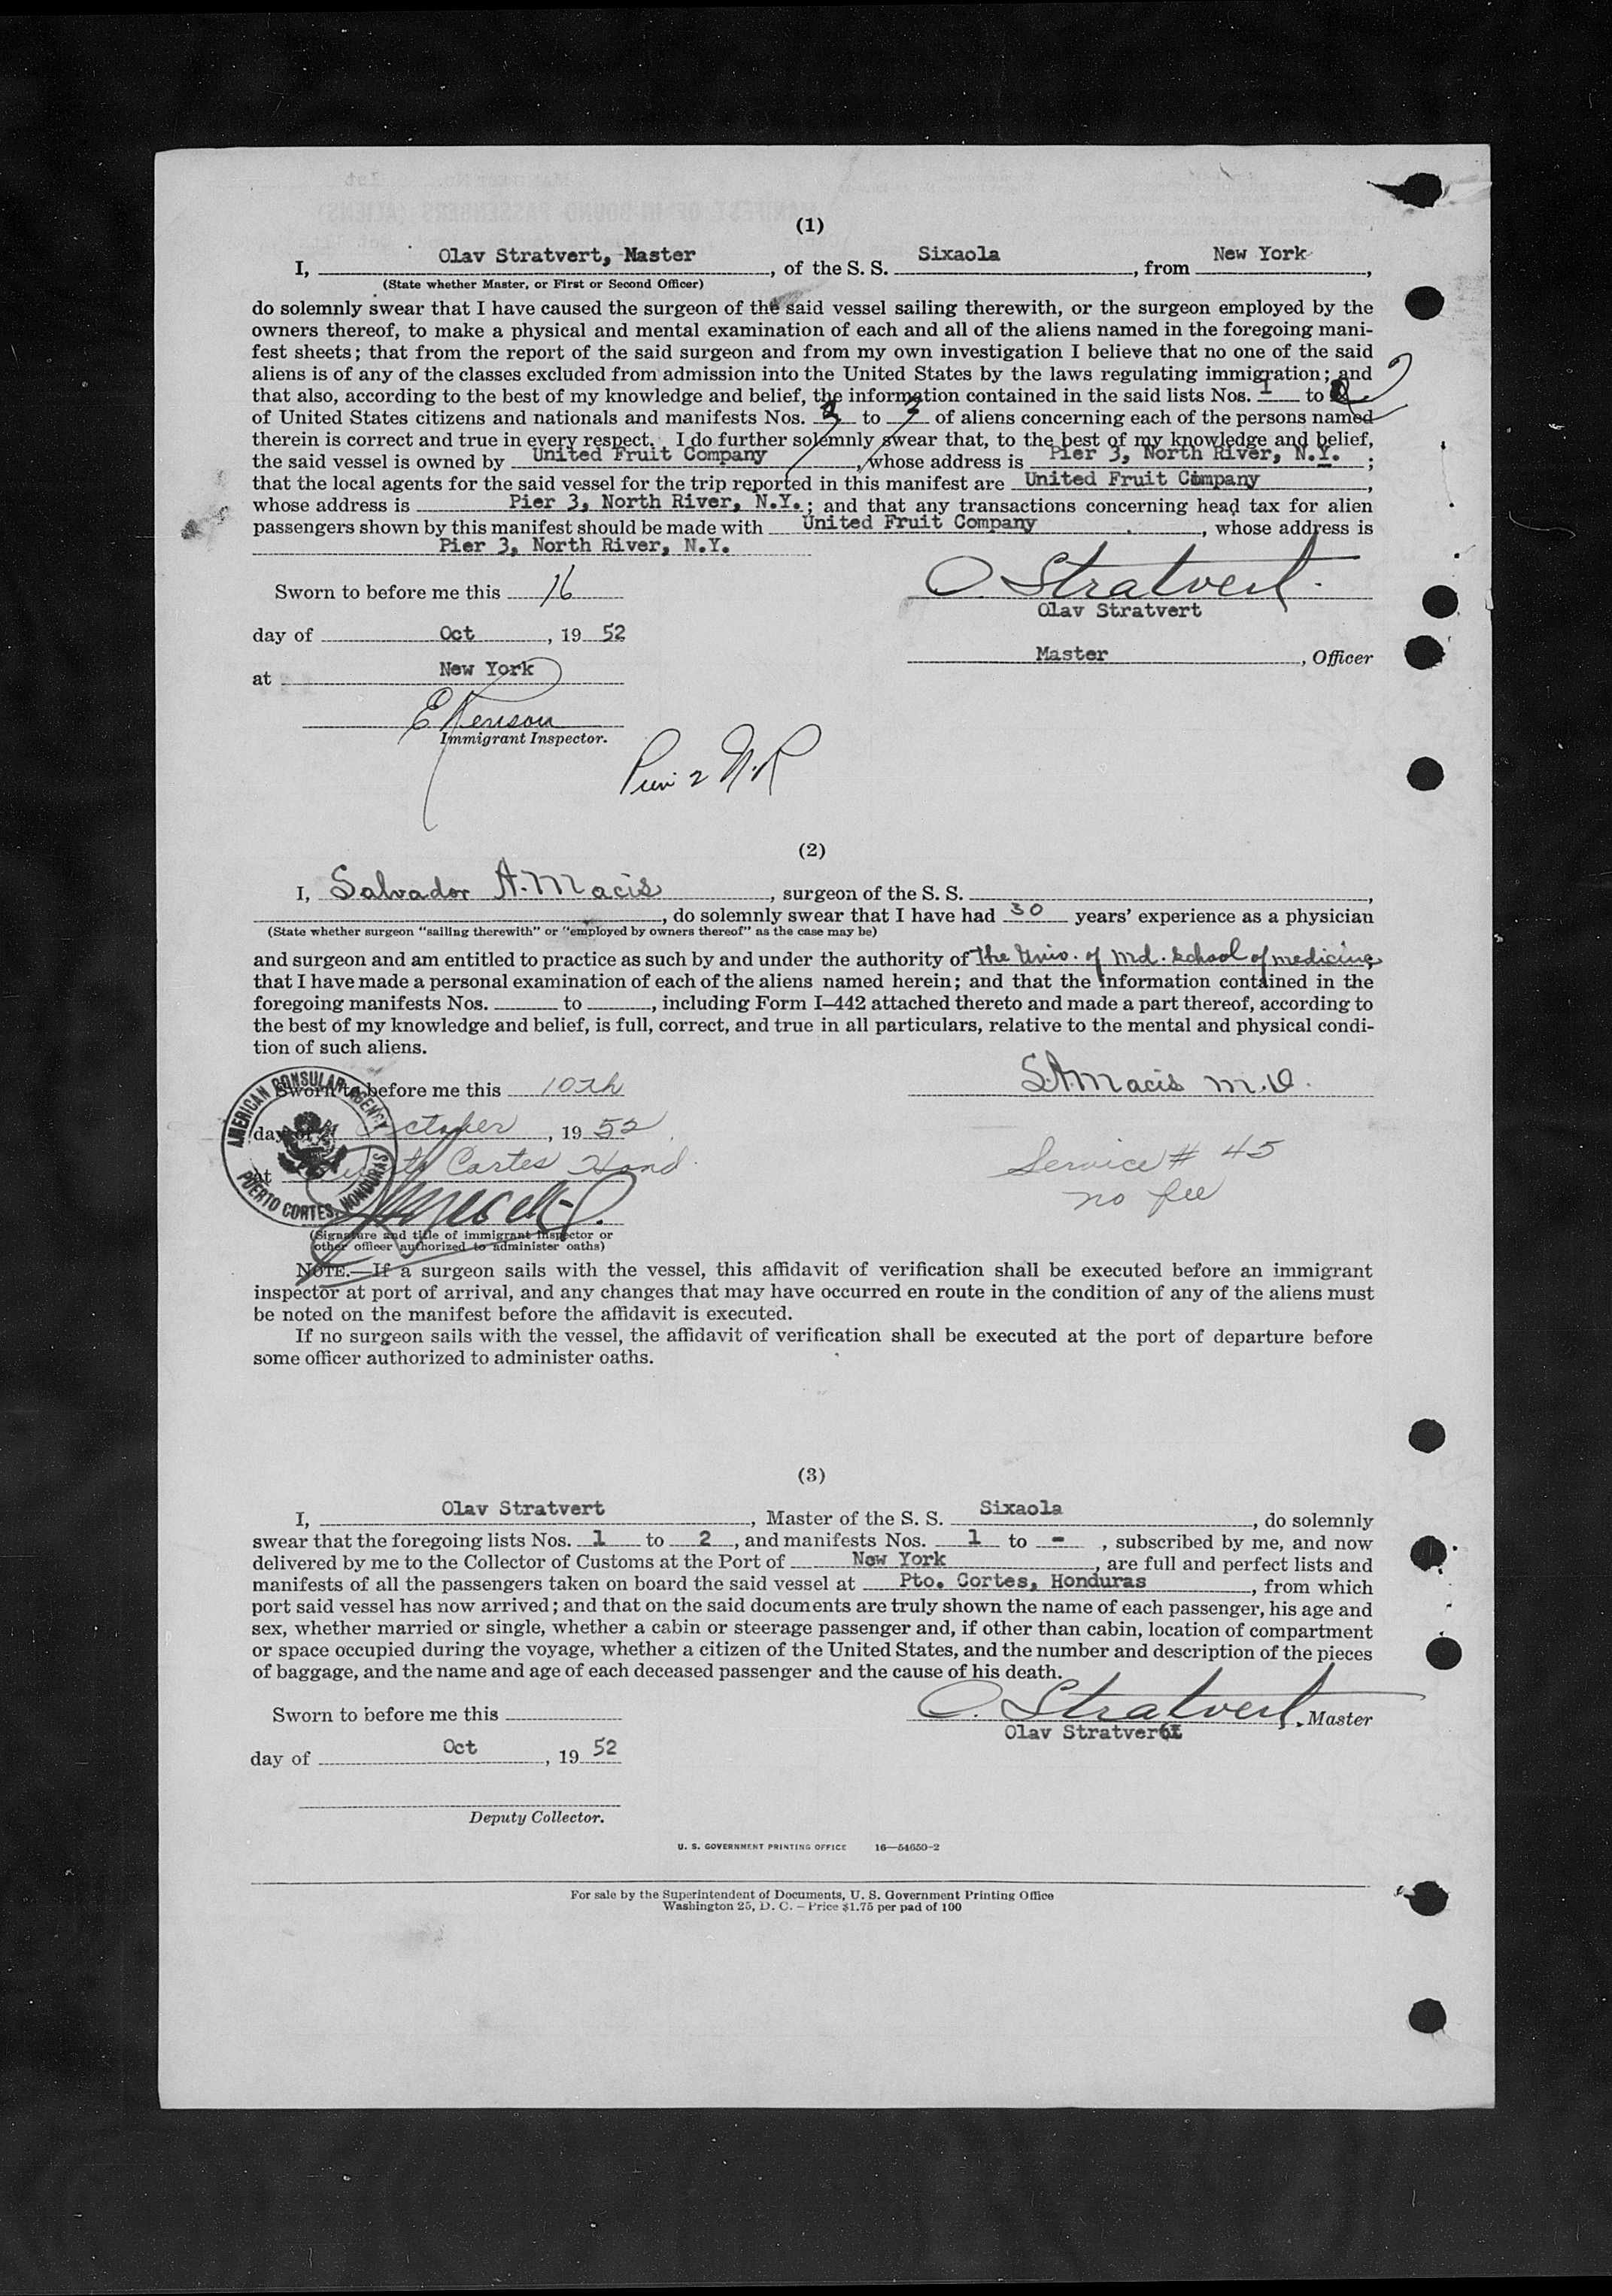 (1)
I, Olav Stratvert, Master, of the S. S. Sixaola, from New York,
(State whether Master, or First or Second Officer)
do solemnly swear that I have caused the surgeon of the said vessel sailing therewith, or the surgeon employed by the
owners thereof, to make a physical and mental examination of each and all of the aliens named in the foregoing mani-
fest sheets; that from the report of the said surgeon and from my own investigation I believe that no one of the said
aliens is of any of the classes excluded from admission into the United States by the laws regulating immigration; and
that also, according to the best of my knowledge and belief, the information contained in the said lists Nos. 1 to 2
of United States citizens and nationals and manifests Nos. to of aliens concerning each of the persons named
therein is correct and true in every respect. I do further solemnly swear that, to the best of my knowledge and belief,
the said vessel is owned by United Fruit Company, whose address is Pier 3, North River, N.Y. ;
that the local agents for the said vessel for the trip reported in this manifest are United Fruit Company,
whose address is Pier 3, North River, N.Y. ; and that any transactions concerning head tax for alien
passengers shown by this manifest should be made with United Fruit Company, whose address is
Pier 3, North River, N.Y.
Sworn to before me this 16
O. Stratvert.
Olav Stratvert
day of Oct, 19 52
Master, Officer
at New York
E Kenison
Immigrant Inspector.
Pier 2 N.R
(2)
I, Salvador A. Macis, surgeon of the S. S.,
, do solemnly swear that I have had 30 years' experience as a physician
(State whether surgeon "sailing therewith" or "employed by owners thereof" as the case may be)
and surgeon and am entitled to practice as such by and under the authority of The Univ. of Md. School of medicine
that I have made a personal examination of each of the aliens named herein; and that the information contained in the
foregoing manifests Nos. to , including Form I-442 attached thereto and made a part thereof, according to
the best of my knowledge and belief, is full, correct, and true in all particulars, relative to the mental and physical condi-
tion of such aliens.
Sworn to before me this 10th
S.A. Macis M.D.
day of October, 19 52
at Puerto Cortes Hond.
AMERICAN CONSULAR AGENCY
PUERTO CORTES, HONDURAS
Service # 45
no fee
(Signature and title of immigrant inspector or
other officer authorized to administer oaths)
NOTE.—If a surgeon sails with the vessel, this affidavit of verification shall be executed before an immigrant
inspector at port of arrival, and any changes that may have occurred en route in the condition of any of the aliens must
be noted on the manifest before the affidavit is executed.
If no surgeon sails with the vessel, the affidavit of verification shall be executed at the port of departure before
some officer authorized to administer oaths.
(3)
I, Olav Stratvert, Master of the S. S. Sixaola, do solemnly
swear that the foregoing lists Nos. 1 to 2, and manifests Nos. 1 to -, subscribed by me, and now
delivered by me to the Collector of Customs at the Port of New York, are full and perfect lists and
manifests of all the passengers taken on board the said vessel at Pto. Cortes, Honduras, from which
port said vessel has now arrived; and that on the said documents are truly shown the name of each passenger, his age and
sex, whether married or single, whether a cabin or steerage passenger and, if other than cabin, location of compartment
or space occupied during the voyage, whether a citizen of the United States, and the number and description of the pieces
of baggage, and the name and age of each deceased passenger and the cause of his death.
Sworn to before me this
O. Stratvert, Master
Olav Stratvert
day of Oct, 19 52
Deputy Collector.
U. S. GOVERNMENT PRINTING OFFICE 16—54650-2
For sale by the Superintendent of Documents, U. S. Government Printing Office
Washington 25, D. C. - Price $1.75 per pad of 100